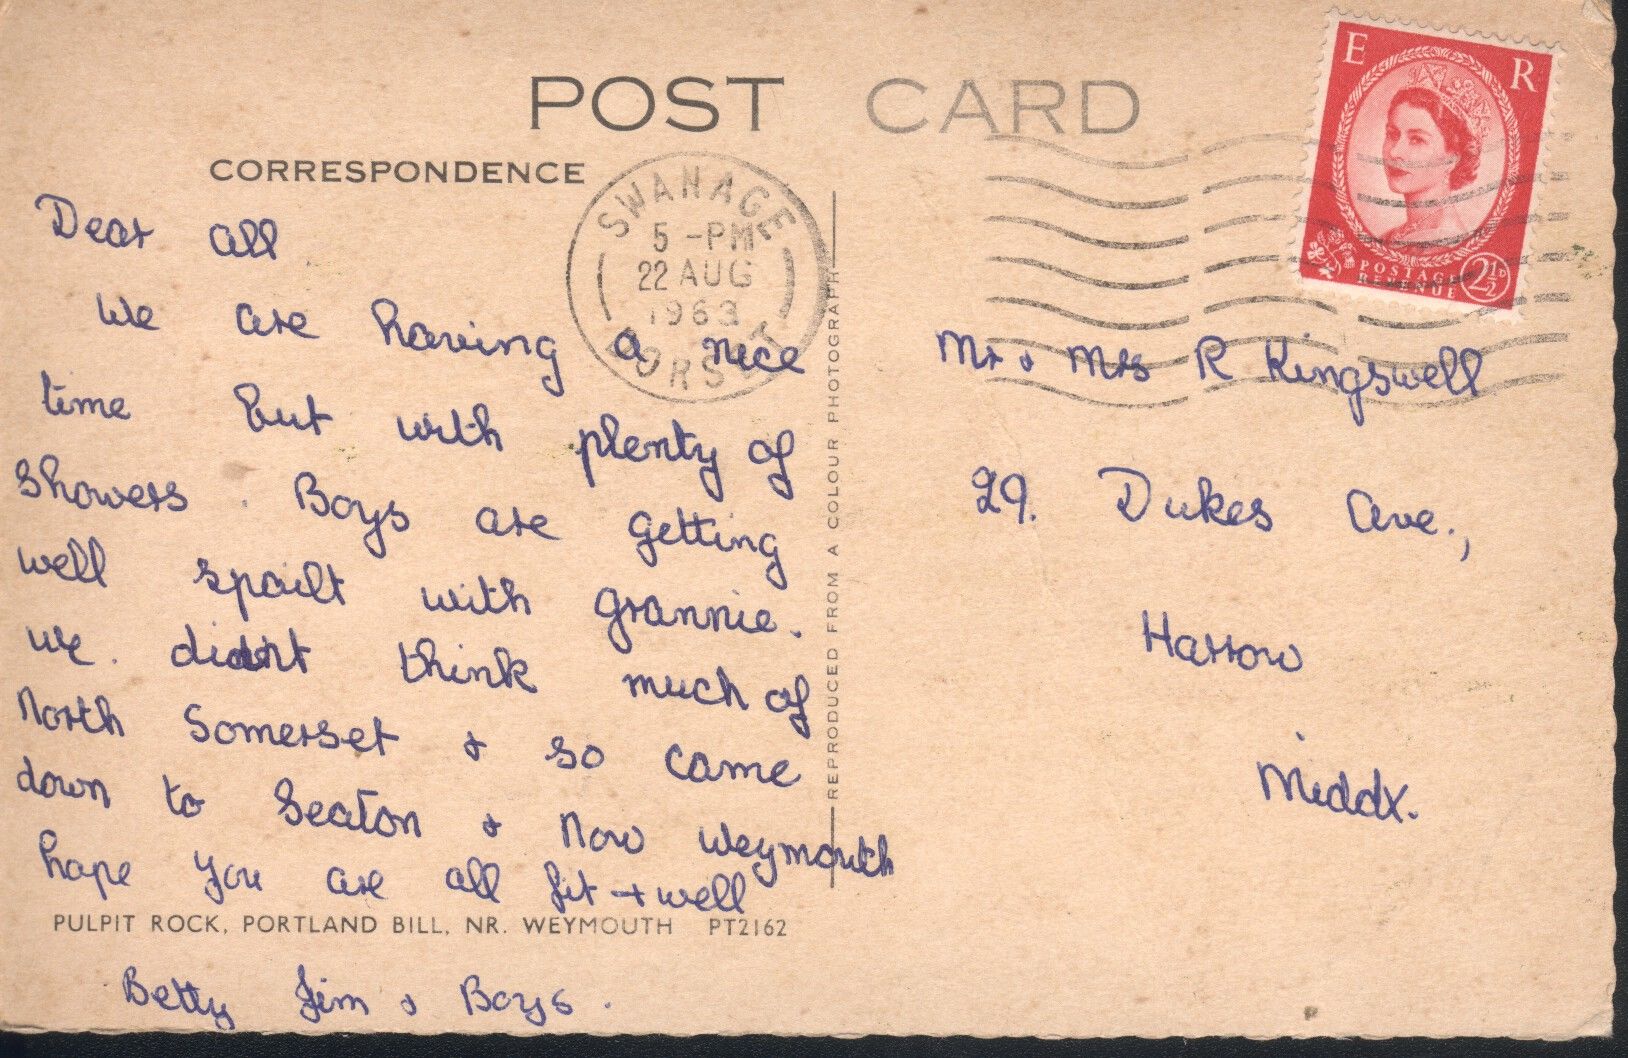 POST CARD
CORRESPONDENCE
SWANAGE
5 -PM
22 AUG
1963
DORSET
E R
POSTAGE
REVENUE
2½D
Dear all
We are having a nice
time but with plenty of
showers. Boys are getting
well spoilt with grannie.
We didn't think much of
North Somerset & so came
down to Seaton & now Weymouth
hope you are all fit + well
PULPIT ROCK, PORTLAND BILL, NR. WEYMOUTH PT2162
Betty Jim & Boys.
REPRODUCED FROM A COLOUR PHOTOGRAPH
Mr & Mrs R Kingswell
29. Dukes Ave.,
Harrow
Middx.